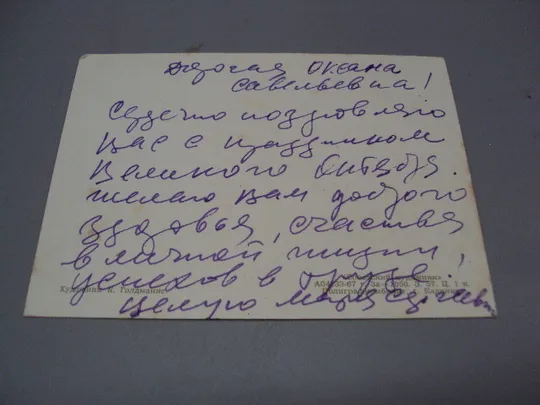 Дорогая Оксана
Савельевна!
Сердечно поздравляю
Вас с праздником
Великого Октября.
Желаю Вам доброго
здоровья, счастья
в личной жизни,
успехов в труде.
Целую Мария Сергеевна
Художник К. Голдманис